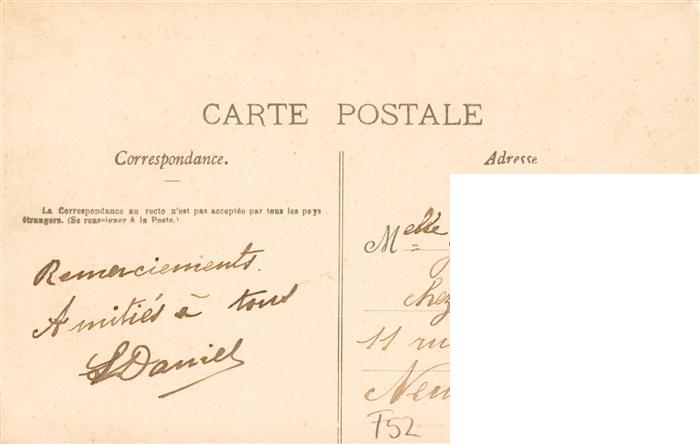 CARTE POSTALE
Correspondance.
Adresse
La Correspondance au recto n'est pas acceptée par tous les pays
étrangers. (Se renseigner à la Poste.)
Remerciements.
Amitiés à tous
Daniel
Melle
chez
11 ru
Neu
F52